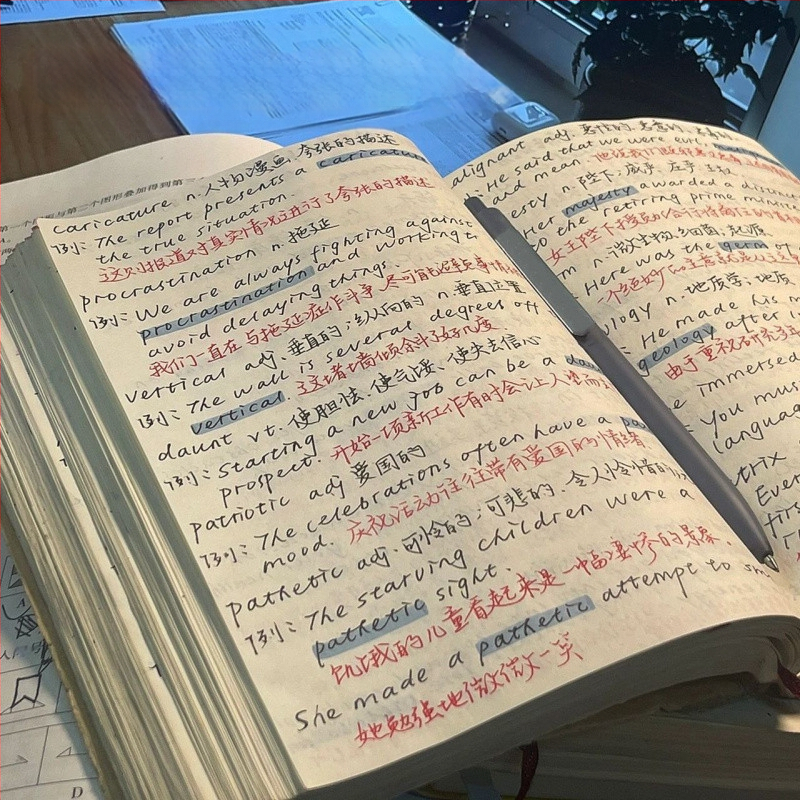 caricature n.人物漫画,夸张的描述
例: The report presents a caricature
the true situation.
这则报道对真实情况进行了夸张的描述
procrastination n.拖延
例: We are always fighting against
procrastination and working to
avoid delaying things.
我们一直在与拖延症作斗争
vertical adj.垂直的;纵向的 n.垂直位置
例: The wall is several degrees off
vertical. 这堵墙倾斜了好几度
daunt vt.使胆怯,使气馁,使失去信心
例: Starting a new job can be a
prospect. 开始一项新工作有时会让人
patriotic adj 爱国的
例: The celebrations often have a
mood. 庆祝活动往往带有爱国的情绪
pathetic adj.可怜的;可悲的,令人怜惜的
例: The starving children were a
pathetic sight.
饥饿的儿童看起来是一幅凄惨的景象.
She made a pathetic attempt to
她勉强地微微一笑
alignant adj.
: He said that we were evil
and mean.
esty n.陛下,威严,庄严
Her majesty awarded a
to the retiring prime
m n.微生物,细菌;起源
: Here was the germ of
ology n.地质学;地质
: He made his
geology after
e immersed
: You must
language
trix
Ever
firs
第一个图形与第二个图形叠加得到第三
D